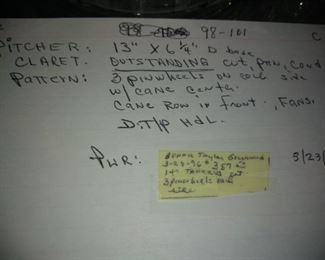 98-101 C
PITCHER: 13" X 6 1/4" D base
CLARET: OUTSTANDING cut, Pan, Cond
Pattern: 3 pinwheels on each side
w/ CANE Center.
Cane Row in front, FANS.
D.T/P HdL.
PWR: 5/23/
Taylor
3-29-96 $357
14" TANKARD
3 pinwheels each
side